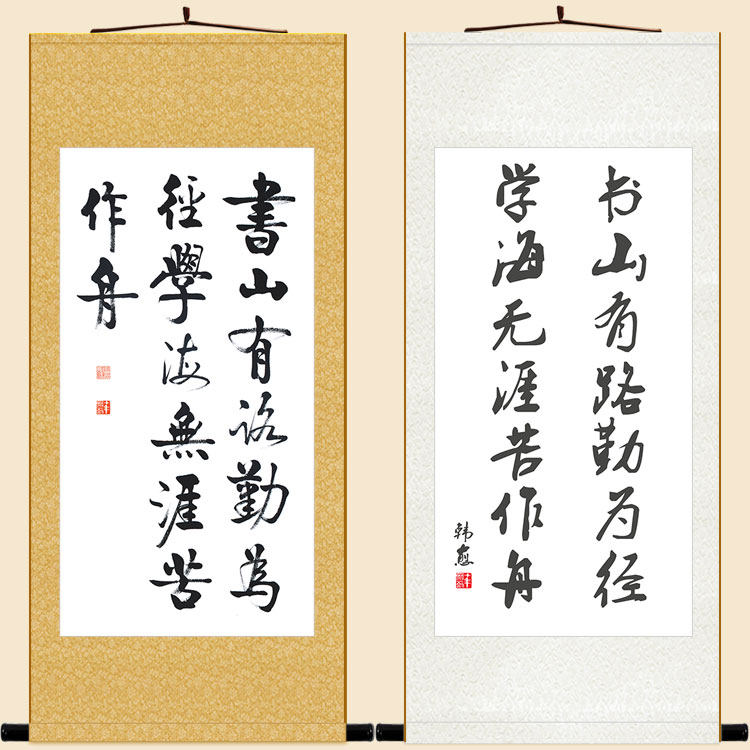 書山有路勤為
徑學海無涯苦
作舟
书山有路勤为径
学海无涯苦作舟
韩愈